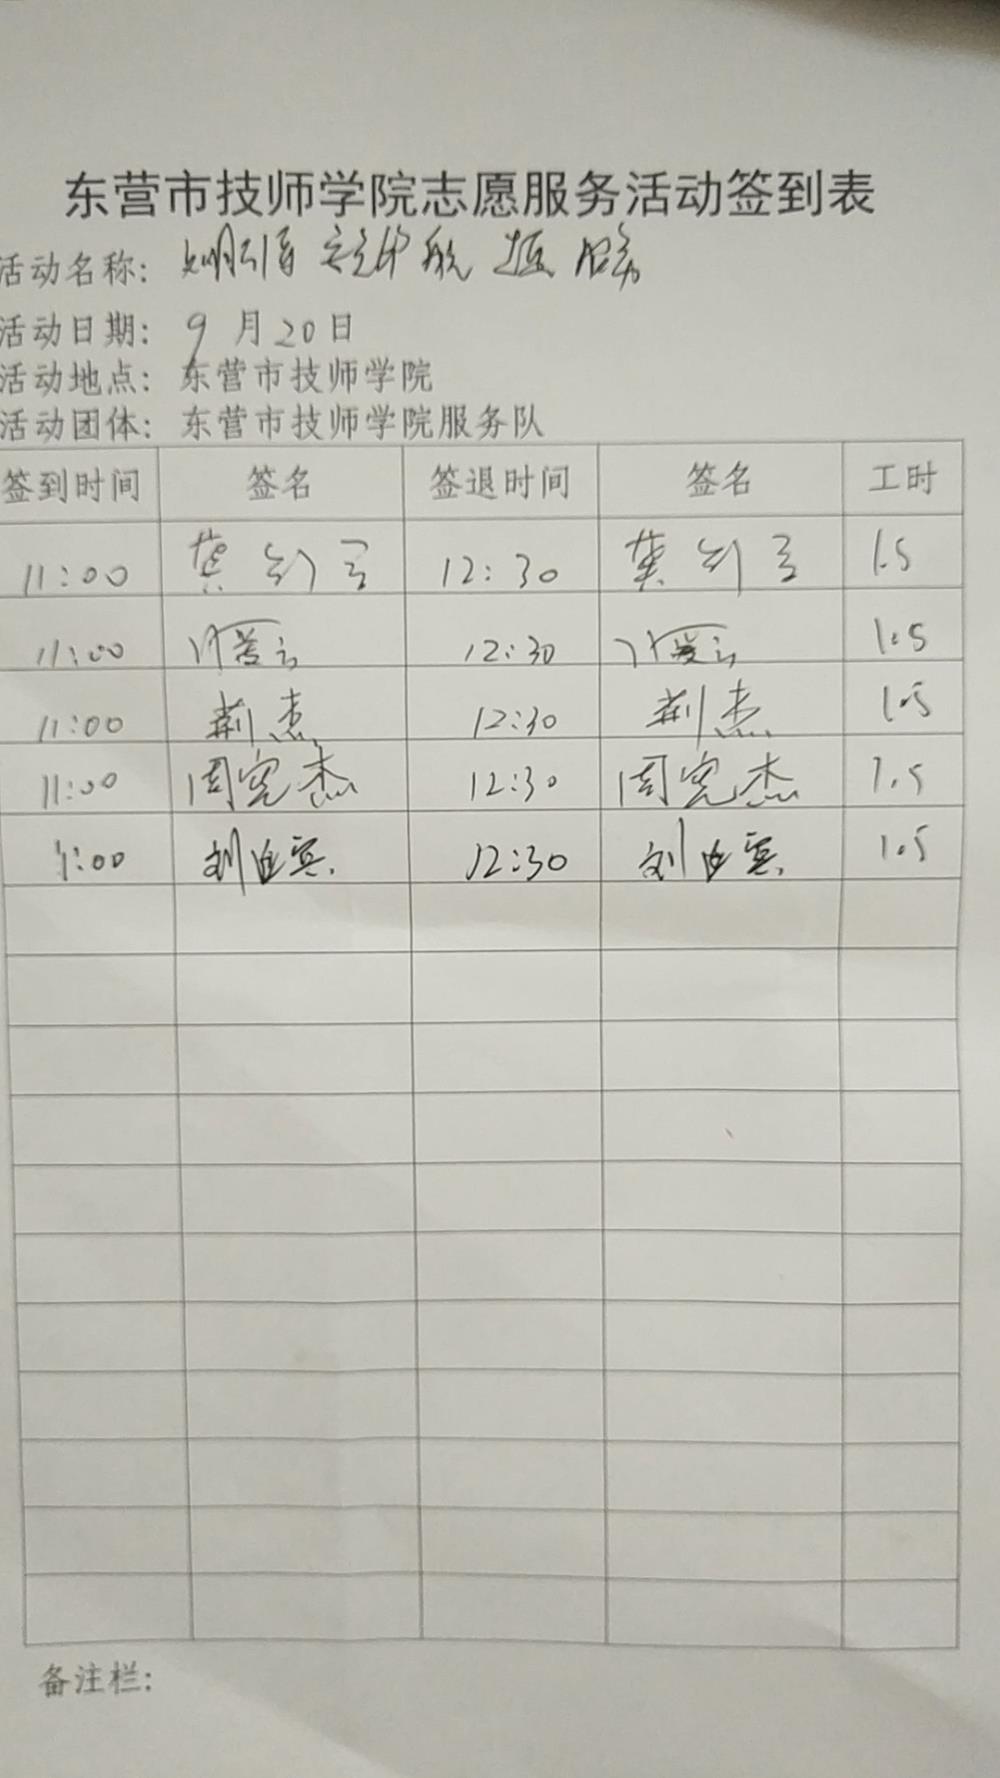 东营市技师学院志愿服务活动签到表
活动名称:
活动日期: 9月20日
活动地点: 东营市技师学院
活动团体: 东营市技师学院服务队
签到时间 签名 签退时间 签名 工时
11:00 龚 12:30 龚 1.5
11:00 12:30 1.5
11:00 荆杰 12:30 荆杰 1.5
11:00 周宪杰 12:30 周宪杰 1.5
1:00 刘 12:30 刘 1.5
备注栏: